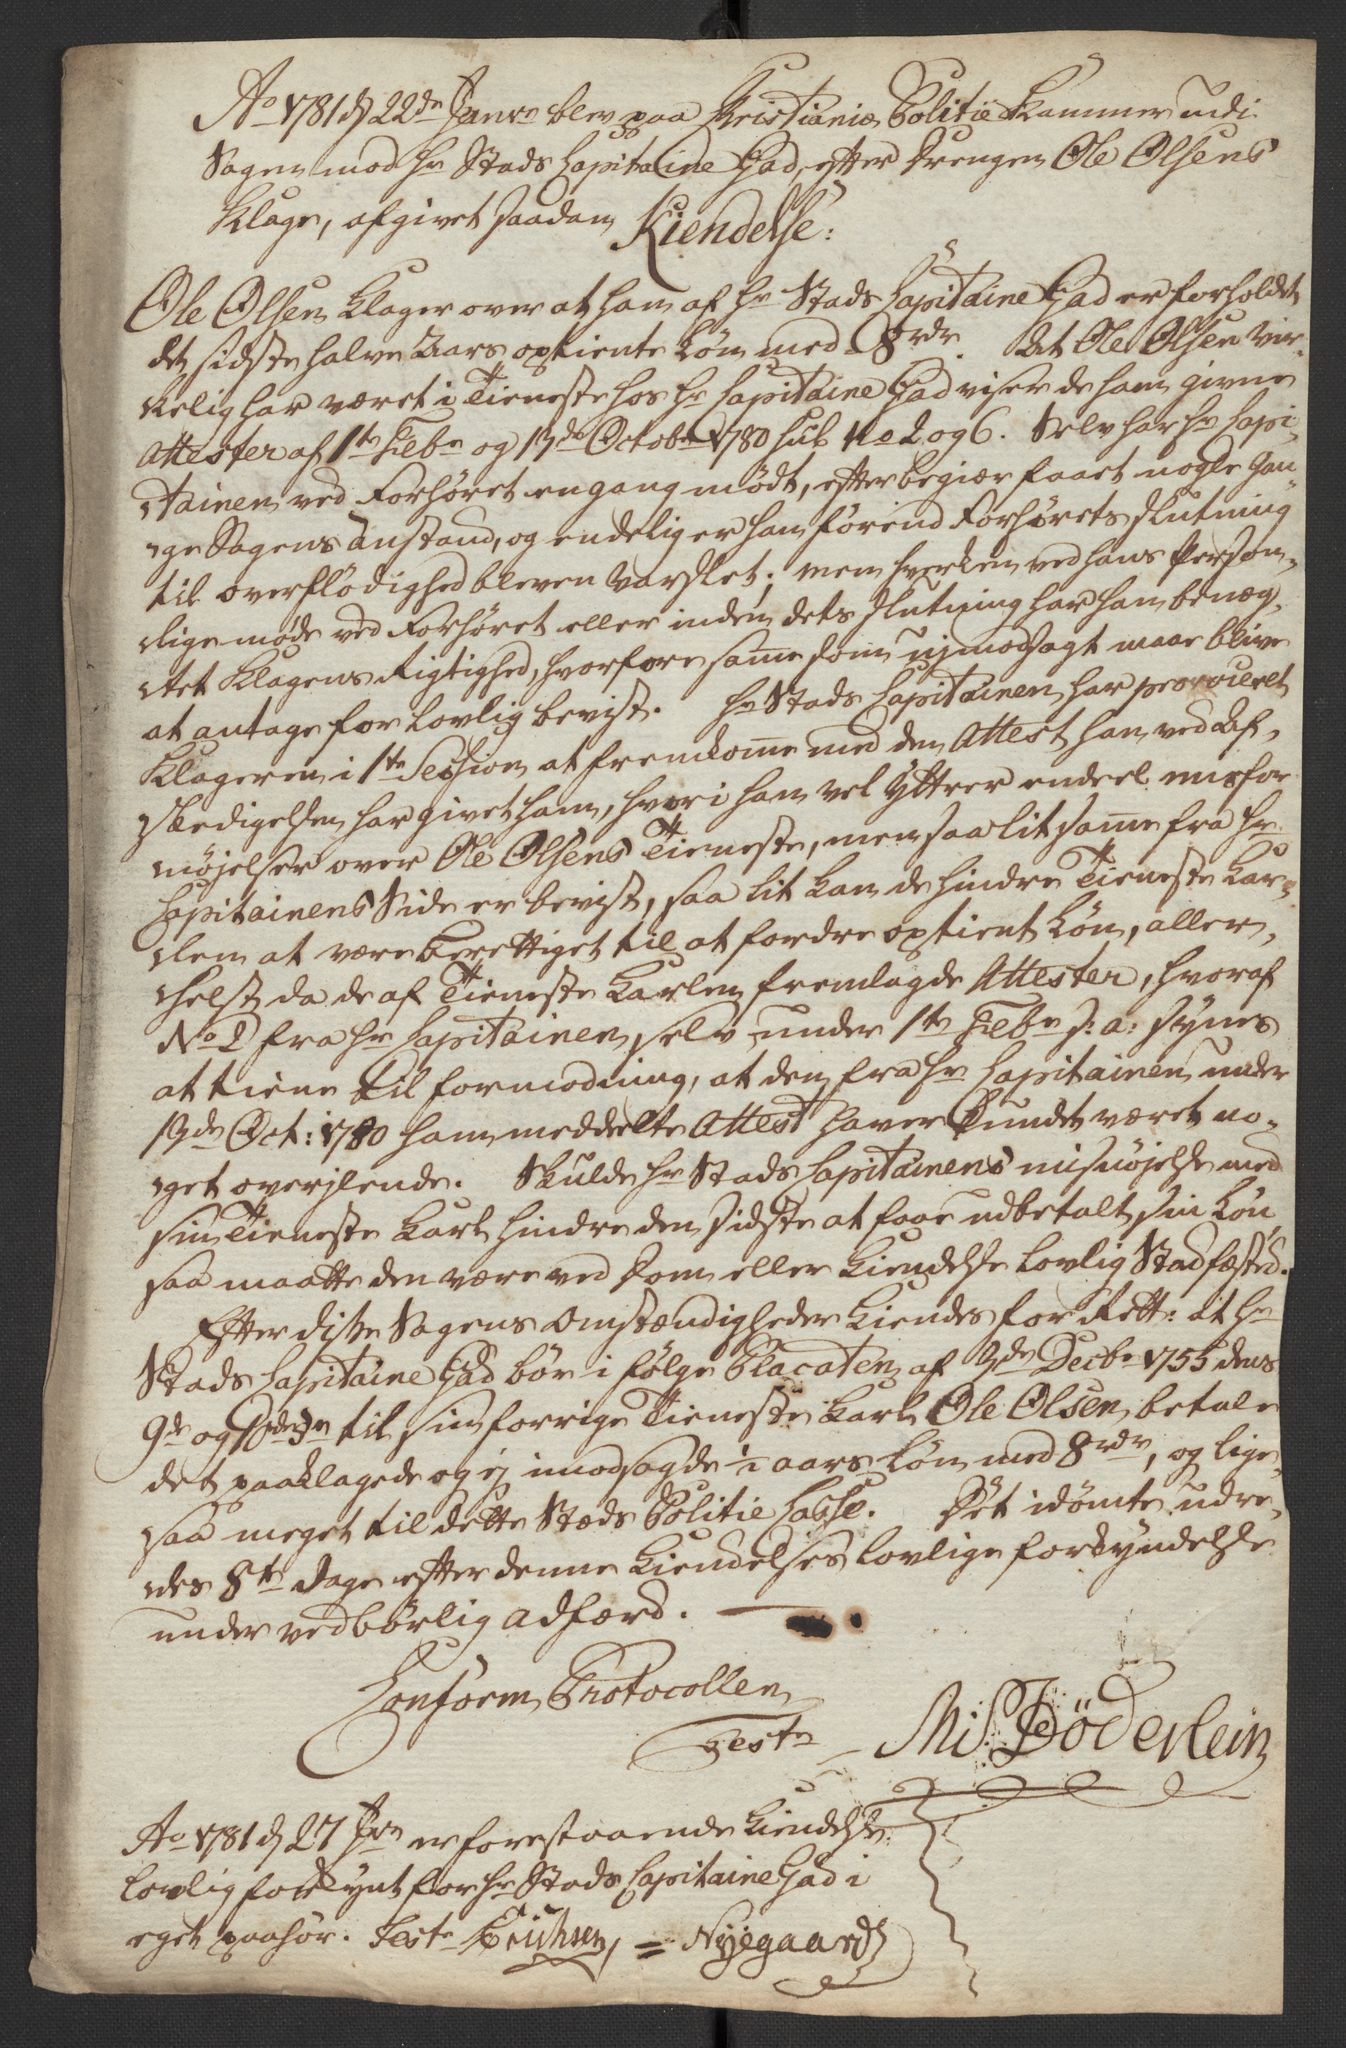 Ao 1781 d 22de Janrr blev paa Christianiæ Politie Kammer udi
Sagen mod Hr Stads Capitaine Gad, efter Drengen Ole Olsens
Klage, afgivet saadan Kiendelse:
Ole Olsen klager over at han af Hr Stads Capitaine Gad er forholdet
det sidste halve Aars optiente Løn med 8 rdr. At Ole Olsen vir-
kelig har været i Tieneste hos Hr Capitaine Gad viser de ham givne
Attester af 1te Febr og 13de Octobr 1780 sub No 2 og 6. Selv har Hr Capi-
tainen ved Forhøret engang mødt, efter begiær faaet nogle Gan-
ge Sagens Anstand, og endelig er han førend Forhørets slutning
til overflødighed bleven varslet; men hverken ved hans Person-
lige møde ved Forhøret eller inden dets slutning har han benæg-
tet Klagens Rigtighed, hvorfore samme som uimodsagt maae blive
at antage for lovlig bevist. Hr Stads Capitainen har provoceret
Klageren i 1te Session at fremkomme med den Attest han ved Af-
skedigelsen har givet ham, hvori han vel yttrer endeel misfor-
nøjelser over Ole Olsens Tieneste, men saa lit samme fra Hr
Capitainens Side er bevist, saa lit kan de hindre Tieneste Kar-
len at være berettiget til at fordre optient Løn, aller-
helst da de af Tieneste Karlen fremlagde Attester, hvoraf
No 2 fra Hr Capitainen selv under 1te Febr s: a: synes
at tiene til formodning, at den fra Hr Capitainen under
13de Oct: 1780 ham meddelte Attest haver kundet været no-
get overjlende. Skulde Hr Stads Capitainens misnøjelse med
sin Tieneste Karl hindre den sidste at faae udbetalt sin Løn,
saa maatte den være ved Dom eller Kiendelse lovlig Stadfæsted.
Efter disse Sagens Omstændigheder kiendes for Rett: At Hr
Stads Capitaine Gad bør i følge Placaten af 3de Decbr 1755 dens
9de og 10de § til sin forrige Tieneste Karl Ole Olsen betale
det paaklagede og ej imodsagde 1/2 aars Løn med 8 rdr, og lige-
saa meget til dette Stæds Politie Casse. Det idømte udre-
des 8te Dage efter denne Kiendelses lovlige forkyndelse
under vedbørlig adfærd.
Conform Protocollen
Test
MS: Døderlein
Ao 1781 d 27 Janr er forestaaende Kiendelse
lovlig forkynt for Hr Stads Capitaine Gad i
eget paahør. Test Erichsen = Nyegaard